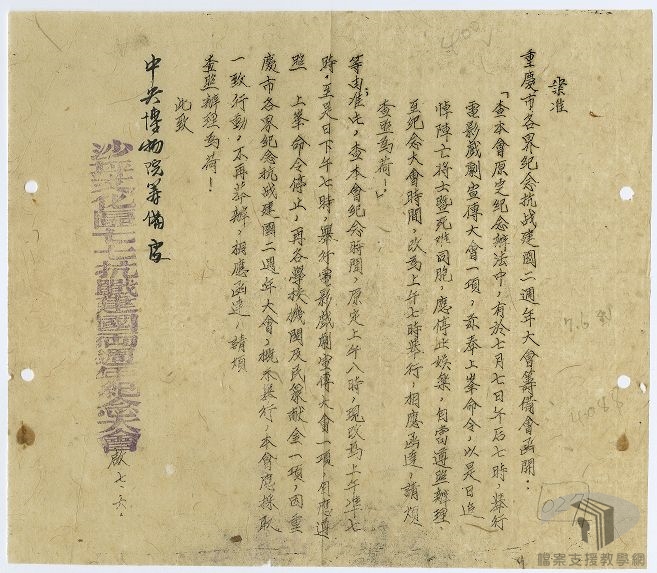 案准
重慶市各界紀念抗战建國二週年大會籌備會函開：
「查本會原定紀念辦法中，有於七月七日午后七時，举行
電影戲劇宣傳大會一項，茲奉上峯命令，以是日追
悼陣亡将士暨死难同胞，應停止娱樂，自當遵照辦理，
至纪念大會時間，改為上午七時举行，相應函達，請煩
查照為荷！」
等由；准此，查本會紀念時間，原定上午八時，現改為上午準七
時，至是日下午七時，舉行電影戲劇宣傳大會一項，自應遵
照　上峯命令停止，再各學校機関及民衆献金一項，因重
慶市各界紀念抗战建國二週年大會，概不举行，本會應採取
一致行動，不再举辦，相應函達，請煩
查照辦理為荷！
此致
中央博物院筹備處
沙坪文化區七七抗戰建國兩週年紀念大會
啟 七、六、
7.6
022
檔案支援教學網